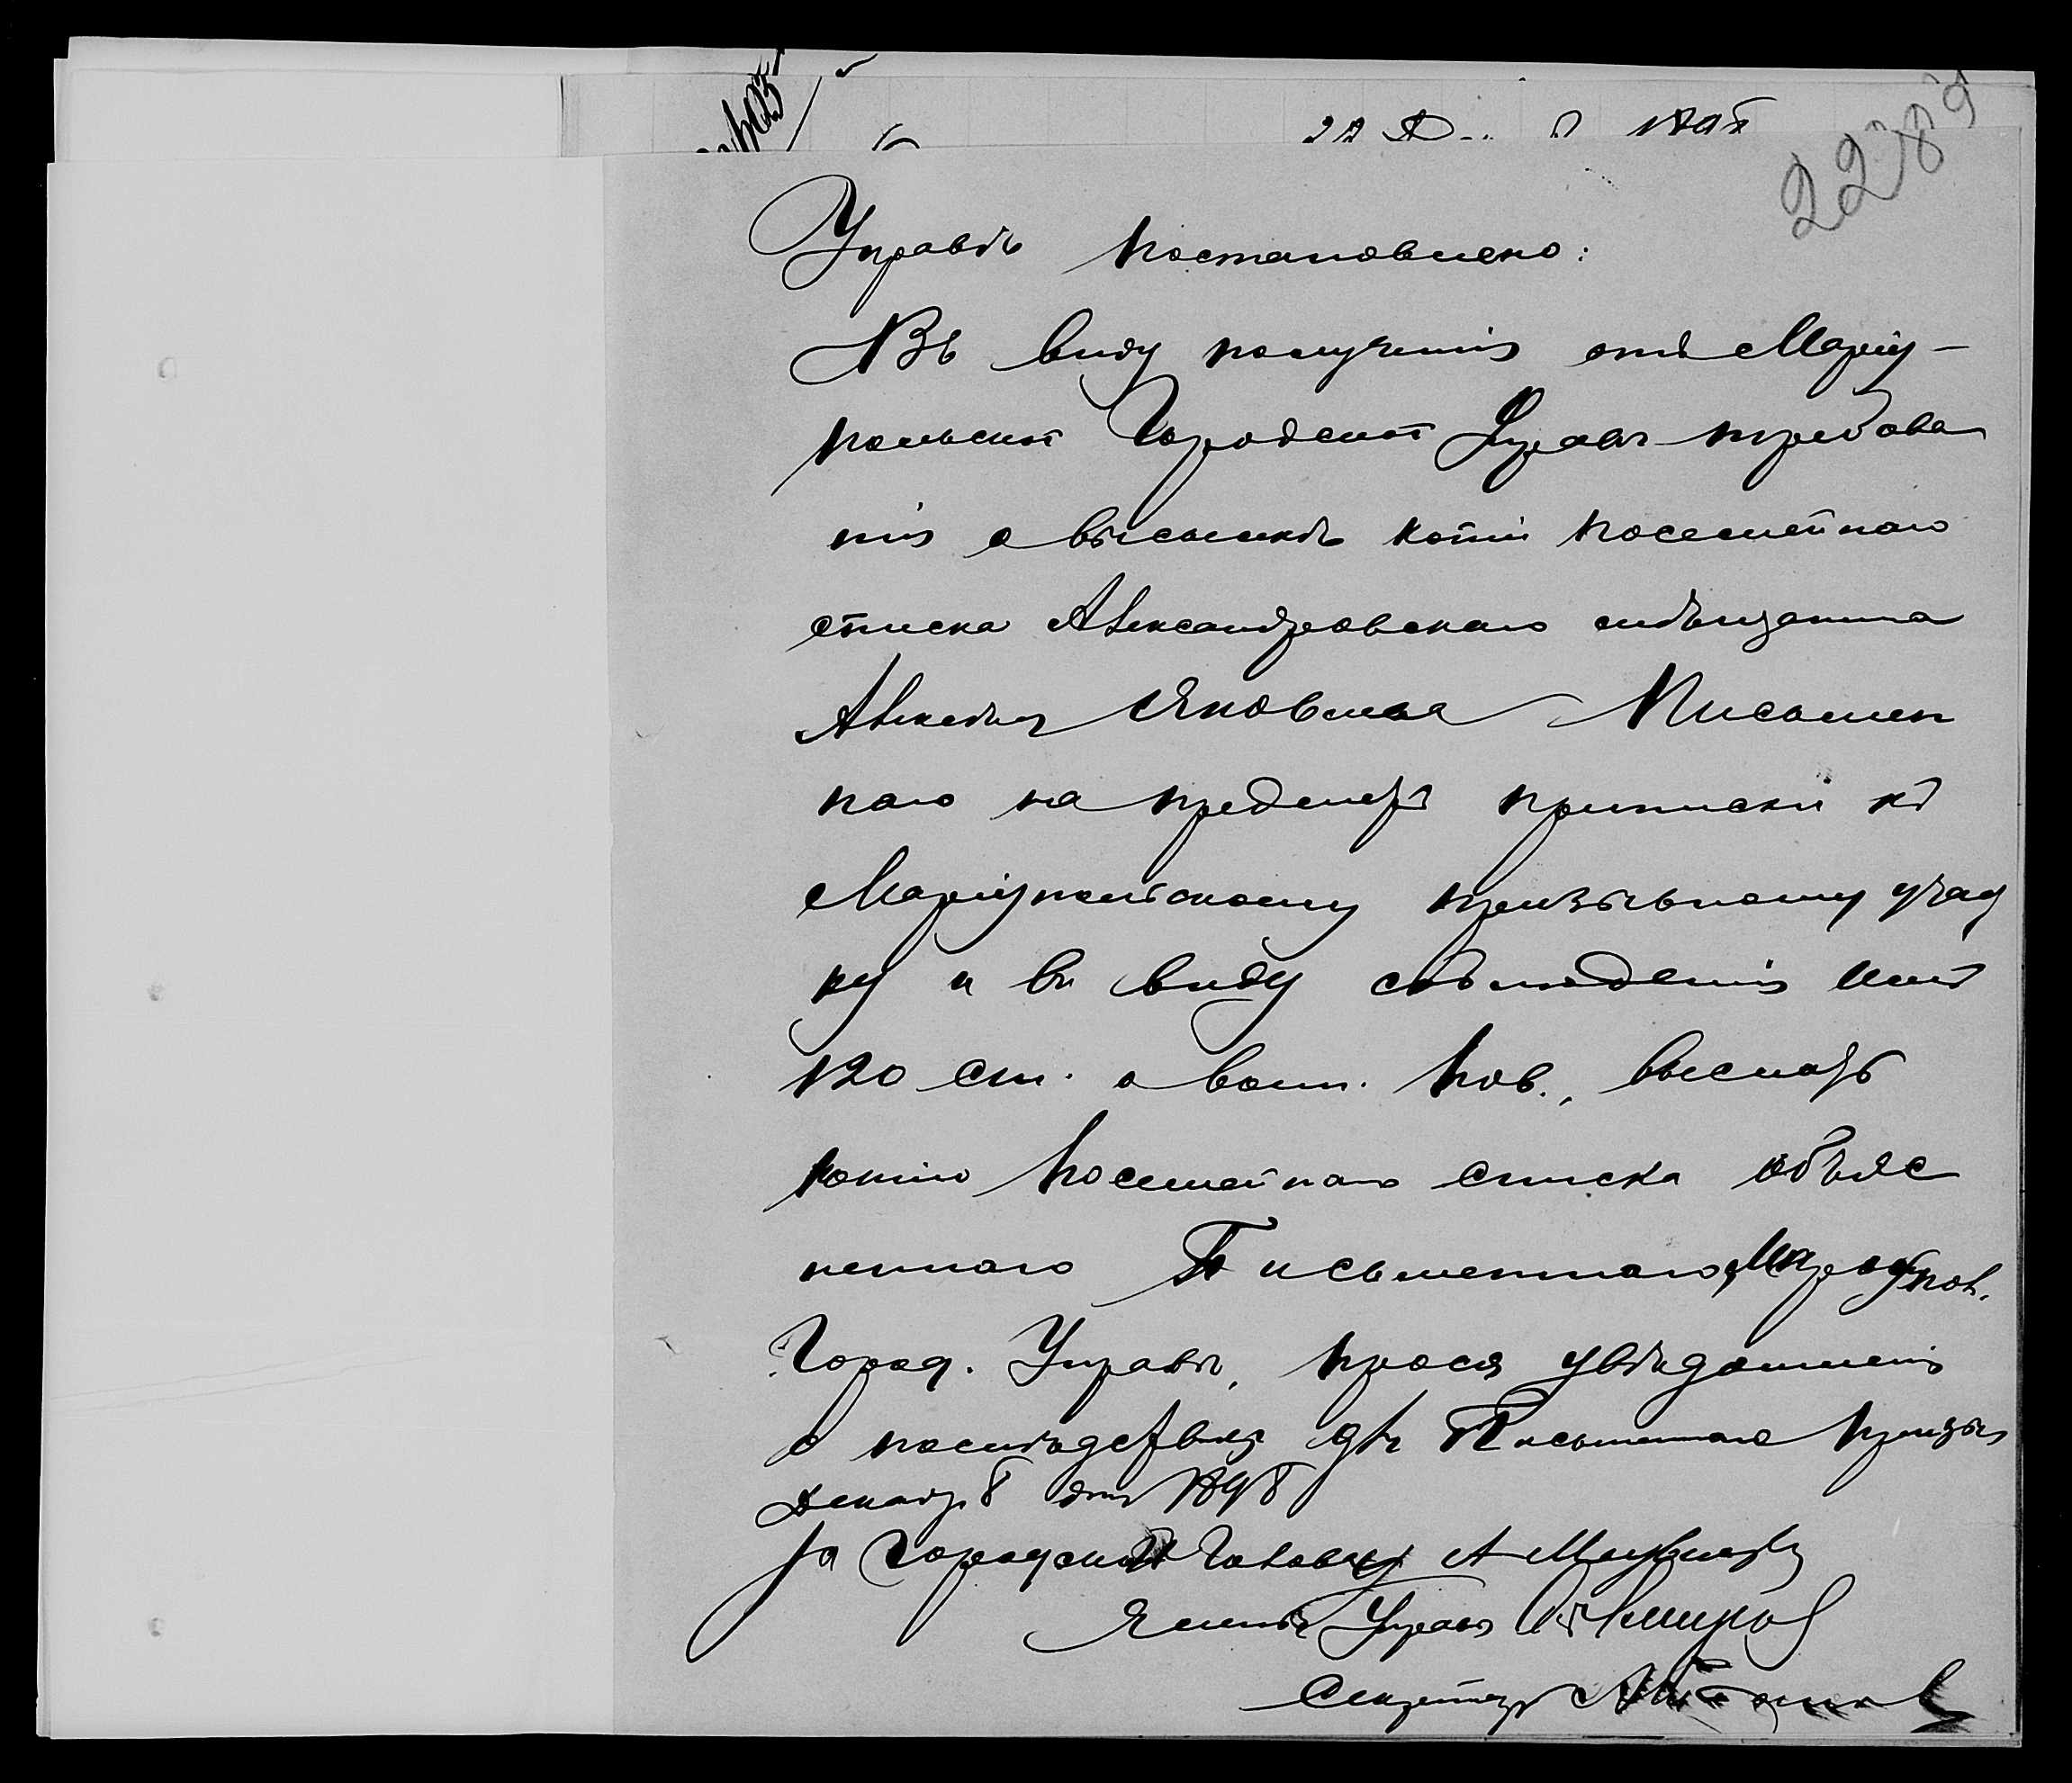 2289
Управѣ постановлено:
Въ виду полученія отъ Маріу-
польской Городской Управы требова
нія о высылкѣ копіи посемейнаго
списка Александровскаго мѣщанина
Алексѣя Яковлева Письмен
наго на предметъ приписки къ
Маріупольскому призывному участ
ку и въ виду соблюденія имъ
120 ст. о воин. пов., выслать
копію посемейнаго списка объяс
неннаго Письменнаго Маріупол.
Город. Управѣ, прося увѣдомленія
о послѣдствіяхъ для Письменнаго призыв
Декабр. 8 дня 1898
За Городского Голову А
Членъ Управы
Секретарь